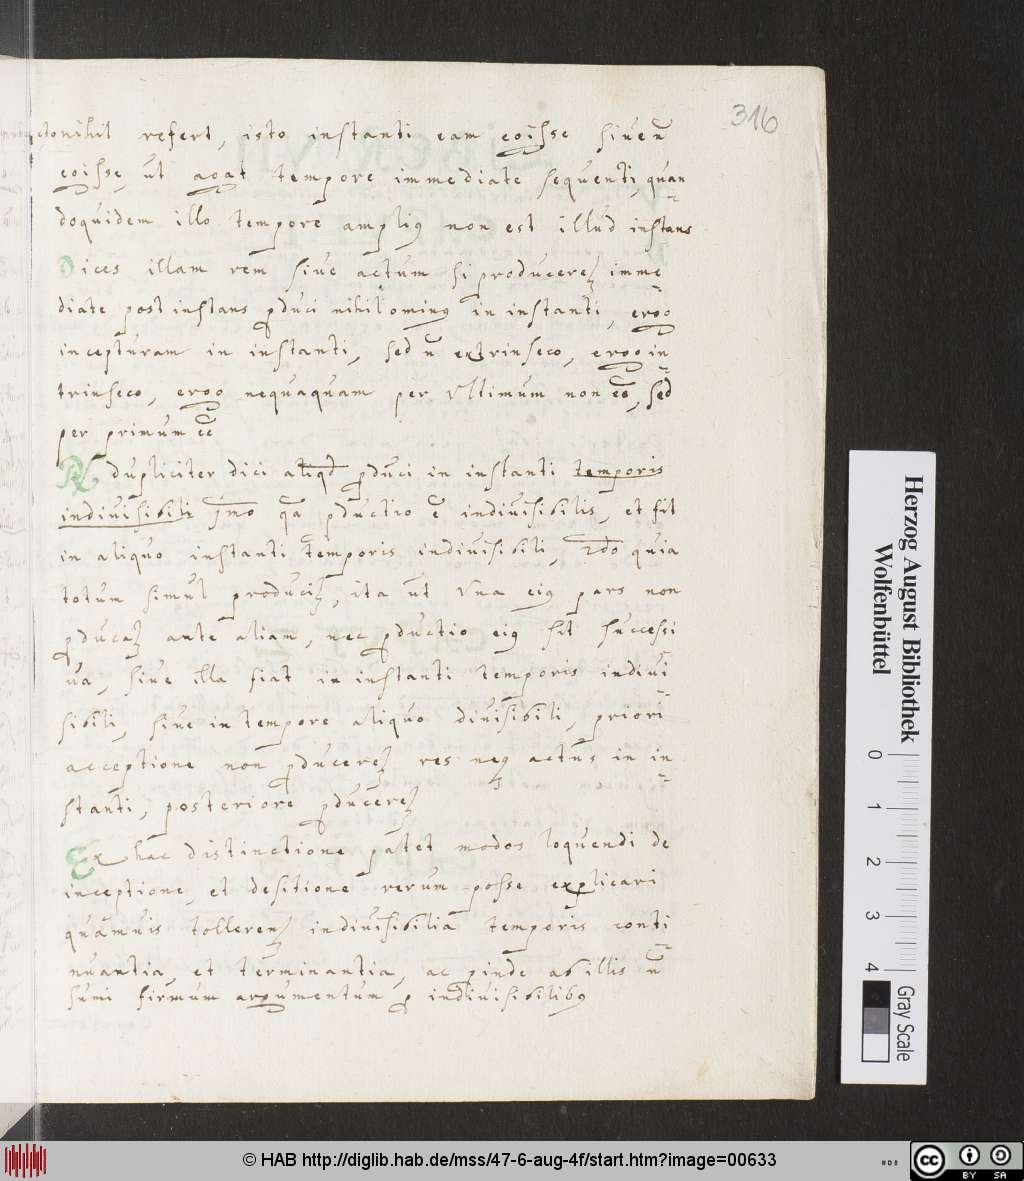 316
refert, isto instanti eam egisse siue n̄
egisse, ut agat tempore immediate sequenti, quan
doquidem illo tempore ampliꝰ non est illud instans
Dices illam rem siue actum si produceret imme
diate post instans ꝓduci nihilominꝰ in instanti, ergo
incepturam in instanti, sed n̄ extrinseco, ergo in
trinseco, ergo nequaquam per Vltimum non , sed
per primum
dupliciter dici aliqd ꝓduci in instanti temporis
indiuisibili qa ꝓductio ē indiuisibilis, et fit
in aliquo instanti temporis indiuisibili, 2do quia
totum simul producit, ita ut Vna eiꝰ pars non
ꝓducat ante aliam, nec ꝓductio eiꝰ sit successi
ua, siue illa fiat in instanti temporis indiui
sibili, siue in tempore aliquo diuisibili, priori
acceptione non ꝓduceret res neqꝫ actus in in
stanti, posteriore ꝓduceret
Ex hac distinctione patet modos loquendi de
inceptione, et desitione rerum posse explicari
quamuis tollerent indiuisibilia temporis conti
nuantia, et terminantia, ac ꝓinde ab illis n̄
sumi firmum argumentum ꝓ indiuisibilibꝰ
Herzog August Bibliothek
Wolfenbüttel
0 1 2 3 4
Gray Scale
© HAB http://diglib.hab.de/mss/47-6-aug-4f/start.htm?image=00633
cc BY SA